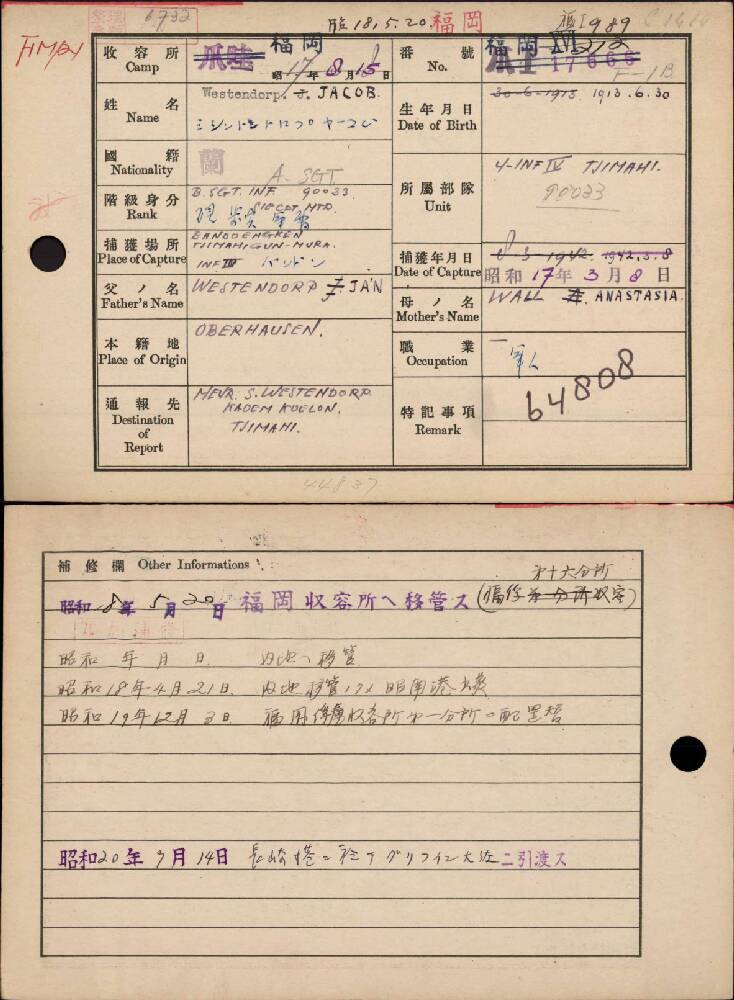 6732
18.5.20. 福岡
989
FIMBI
收容所 Camp
爪哇 福岡
昭 17年 8月 15日
番號 No.
福岡 XVI 272
17666
F-1B
姓名 Name
Westendorp. J. JACOB.
生年月日 Date of Birth
30-6-1913 1913.6.30
國籍 Nationality
蘭
A. SGT
階級身分 Rank
B. SGT. INF 90033
所屬部隊 Unit
4-INF IV TJIMAHI.
90033
捕獲場所 Place of Capture
BANDOENGKEN
TJIMAHIGUN-MURA.
INF IV バンドン
捕獲年月日 Date of Capture
8-3-1942 1942.3.8
昭和 17年 3月 8日
父ノ名 Father's Name
WESTENDORP J. JAN
母ノ名 Mother's Name
WALL A. ANASTASIA.
本籍地 Place of Origin
OBERHAUSEN.
職業 Occupation
軍人
通報先 Destination of Report
MEVR. S. WESTENDORP.
KADEM KOELON.
TJIMAHI.
特記事項 Remark
64808
44837
補修欄 Other Informations
第十六分所
昭和18年5月20日 福岡収容所ヘ移管ス
昭和 年 月 日 内地ヘ移管
昭和18年4月21日 内地移管ノタメ昭南港出発
昭和19年12月3日 福岡俘虜収容所第一分所ニ配置替
昭和20年9月14日 長崎港ニ於テグリフイン大佐ニ引渡ス